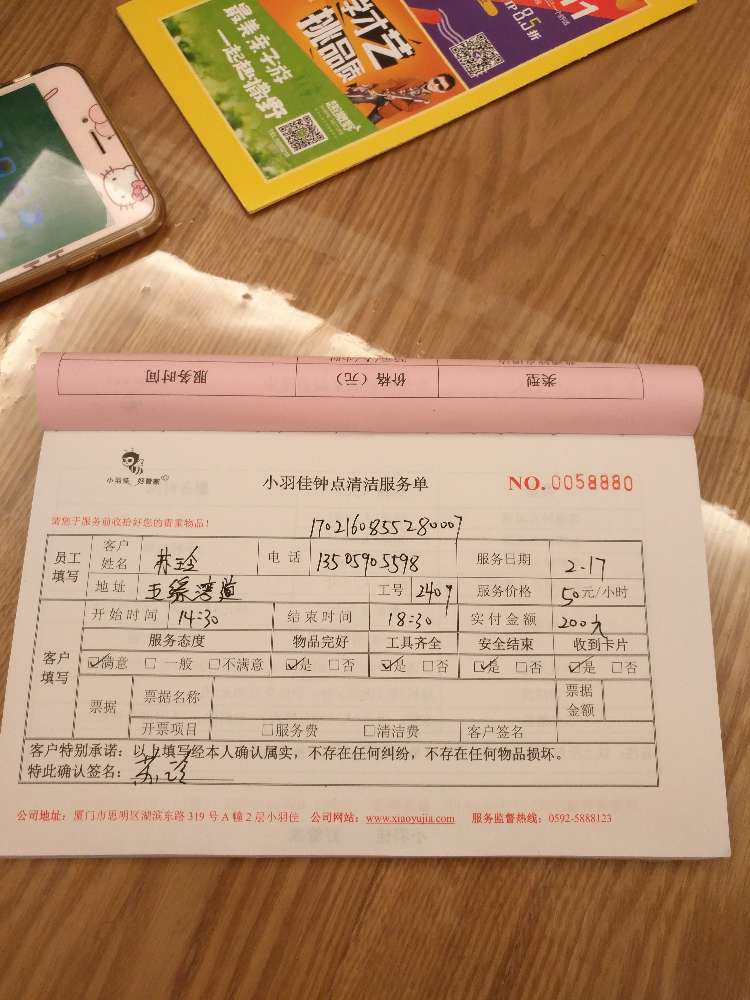 学才艺
挑品质
最美亲子游
一起趣绿野
8.5折
类型
价格（元）
服务时间
小羽佳 好管家
小羽佳钟点清洁服务单
NO. 0058880
请您于服务前收拾好您的贵重物品！
1702160855280007
员工填写
客户姓名 林珍 电话 13505905598 服务日期 2-17
地址 工号 2407 服务价格 50元/小时
客户填写
开始时间 14:30 结束时间 18:30 实付金额 200元
服务态度 物品完好 工具齐全 安全结束 收到卡片
☑满意 □一般 □不满意 ☑是 □否 ☑是 □否 ☑是 □否 ☑是 □否
票据 票据名称 票据金额
开票项目 □服务费 □清洁费 客户签名
客户特别承诺：以上填写经本人确认属实，不存在任何纠纷，不存在任何物品损坏。
特此确认签名：
公司地址：厦门市思明区湖滨东路 319 号 A 幢 2 层小羽佳 公司网站：www.xiaoyujia.com 服务监督热线：0592-5888123